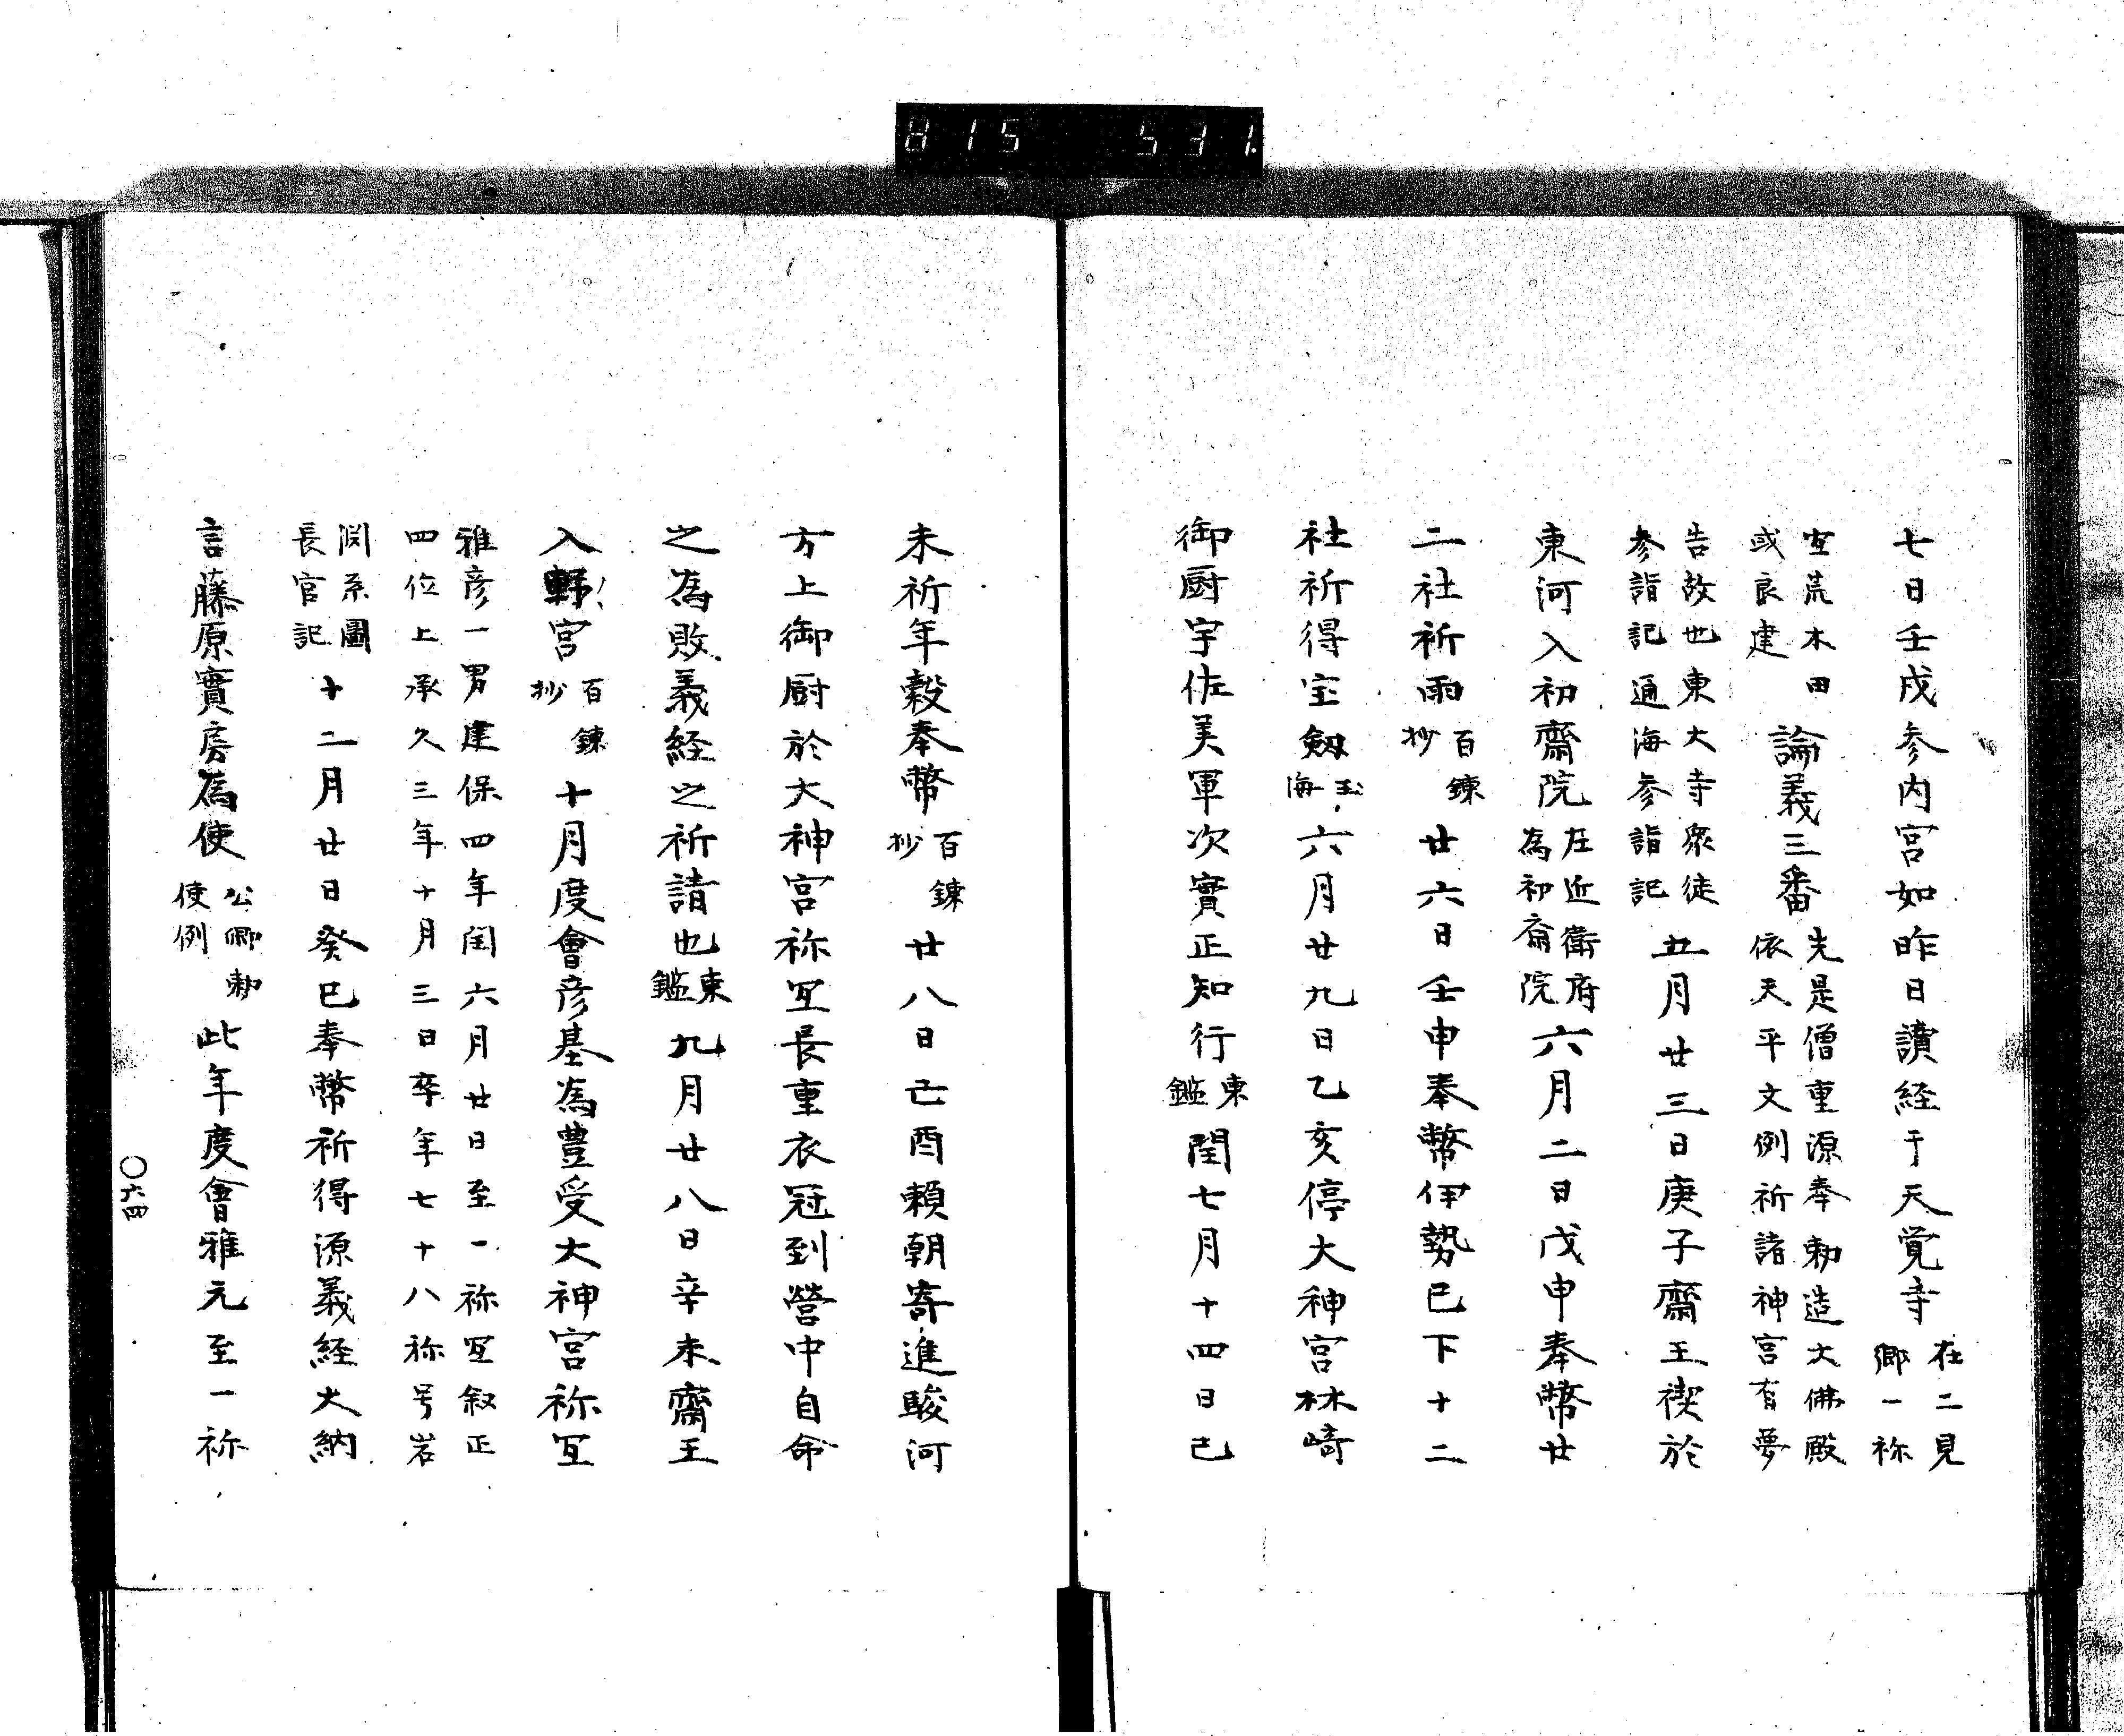 815 531.
七日壬戌参内宮如昨日讀経于天覚寺在二見郷一祢
宜荒木田或良建論義三番先是僧重源奉勅造大佛殿依天平文例祈諸神宮有夢
告故也東大寺衆徒参詣記通海参詣記五月廿三日庚子齋王禊於
東河入初齋院左近衛府為初齋院六月二日戊申奉幣廿
二社祈雨百錬抄廿六日壬申奉幣伊勢已下十二
社祈得宝劔玉海六月廿九日乙亥停大神宮林﨑
御厨宇佐美軍次實正知行東鑑閏七月十四日己
未祈年穀奉幣百錬抄廿八日亡酉頼朝寄進駿河
方上御厨於大神宮祢宜長重衣冠到營中自命
之為敗義経之祈請也東鑑九月廿八日辛未齋王
入野宮百錬抄十月度會彦基為豊受大神宮祢宜
雅彦一男建保四年閏六月廿日至一祢宜叙正四位上承久三年十月三日卒年七十八祢号岩
渕系圖長官記十二月廿日癸巳奉幣祈得源義経大納
言藤原實房為使公卿勅使例此年度會雅元至一祢
〇六四